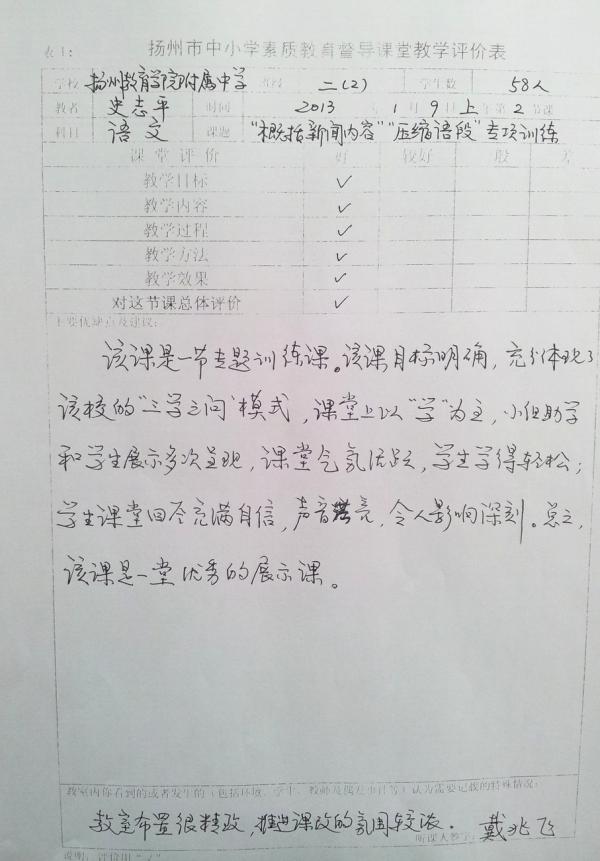 表1:
扬州市中小学素质教育督导课堂教学评价表
学校 扬州教育学院附属中学 班级 二(2) 学生数 58人
教者 史志平 时间 2013 年 1 月 9 日 上 午第 2 节课
科目 语文 课题 “概括新闻内容”“压缩语段”专项训练
课堂评价 好 较好 一般 差
教学目标 ✓
教学内容 ✓
教学过程 ✓
教学方法 ✓
教学效果 ✓
对这节课总体评价 ✓
主要优缺点及建议:
该课是一节专题训练课。该课目标明确，充分体现了
该校的“三学三问”模式，课堂上以“学”为主，小组助学
和学生展示多次呈现，课堂气氛活跃，学生学得轻松；
学生课堂回答充满自信，声音亮，令人影响深刻。总之，
该课是一堂优秀的展示课。
教室内你看到的或者发生的(包括环境、学生、教师及偶发事件等)认为需要记载的特殊情况:
教室布置很精致，推进课改的氛围较浓. 戴兆飞
听课人签字:
说明: 评价用“✓”